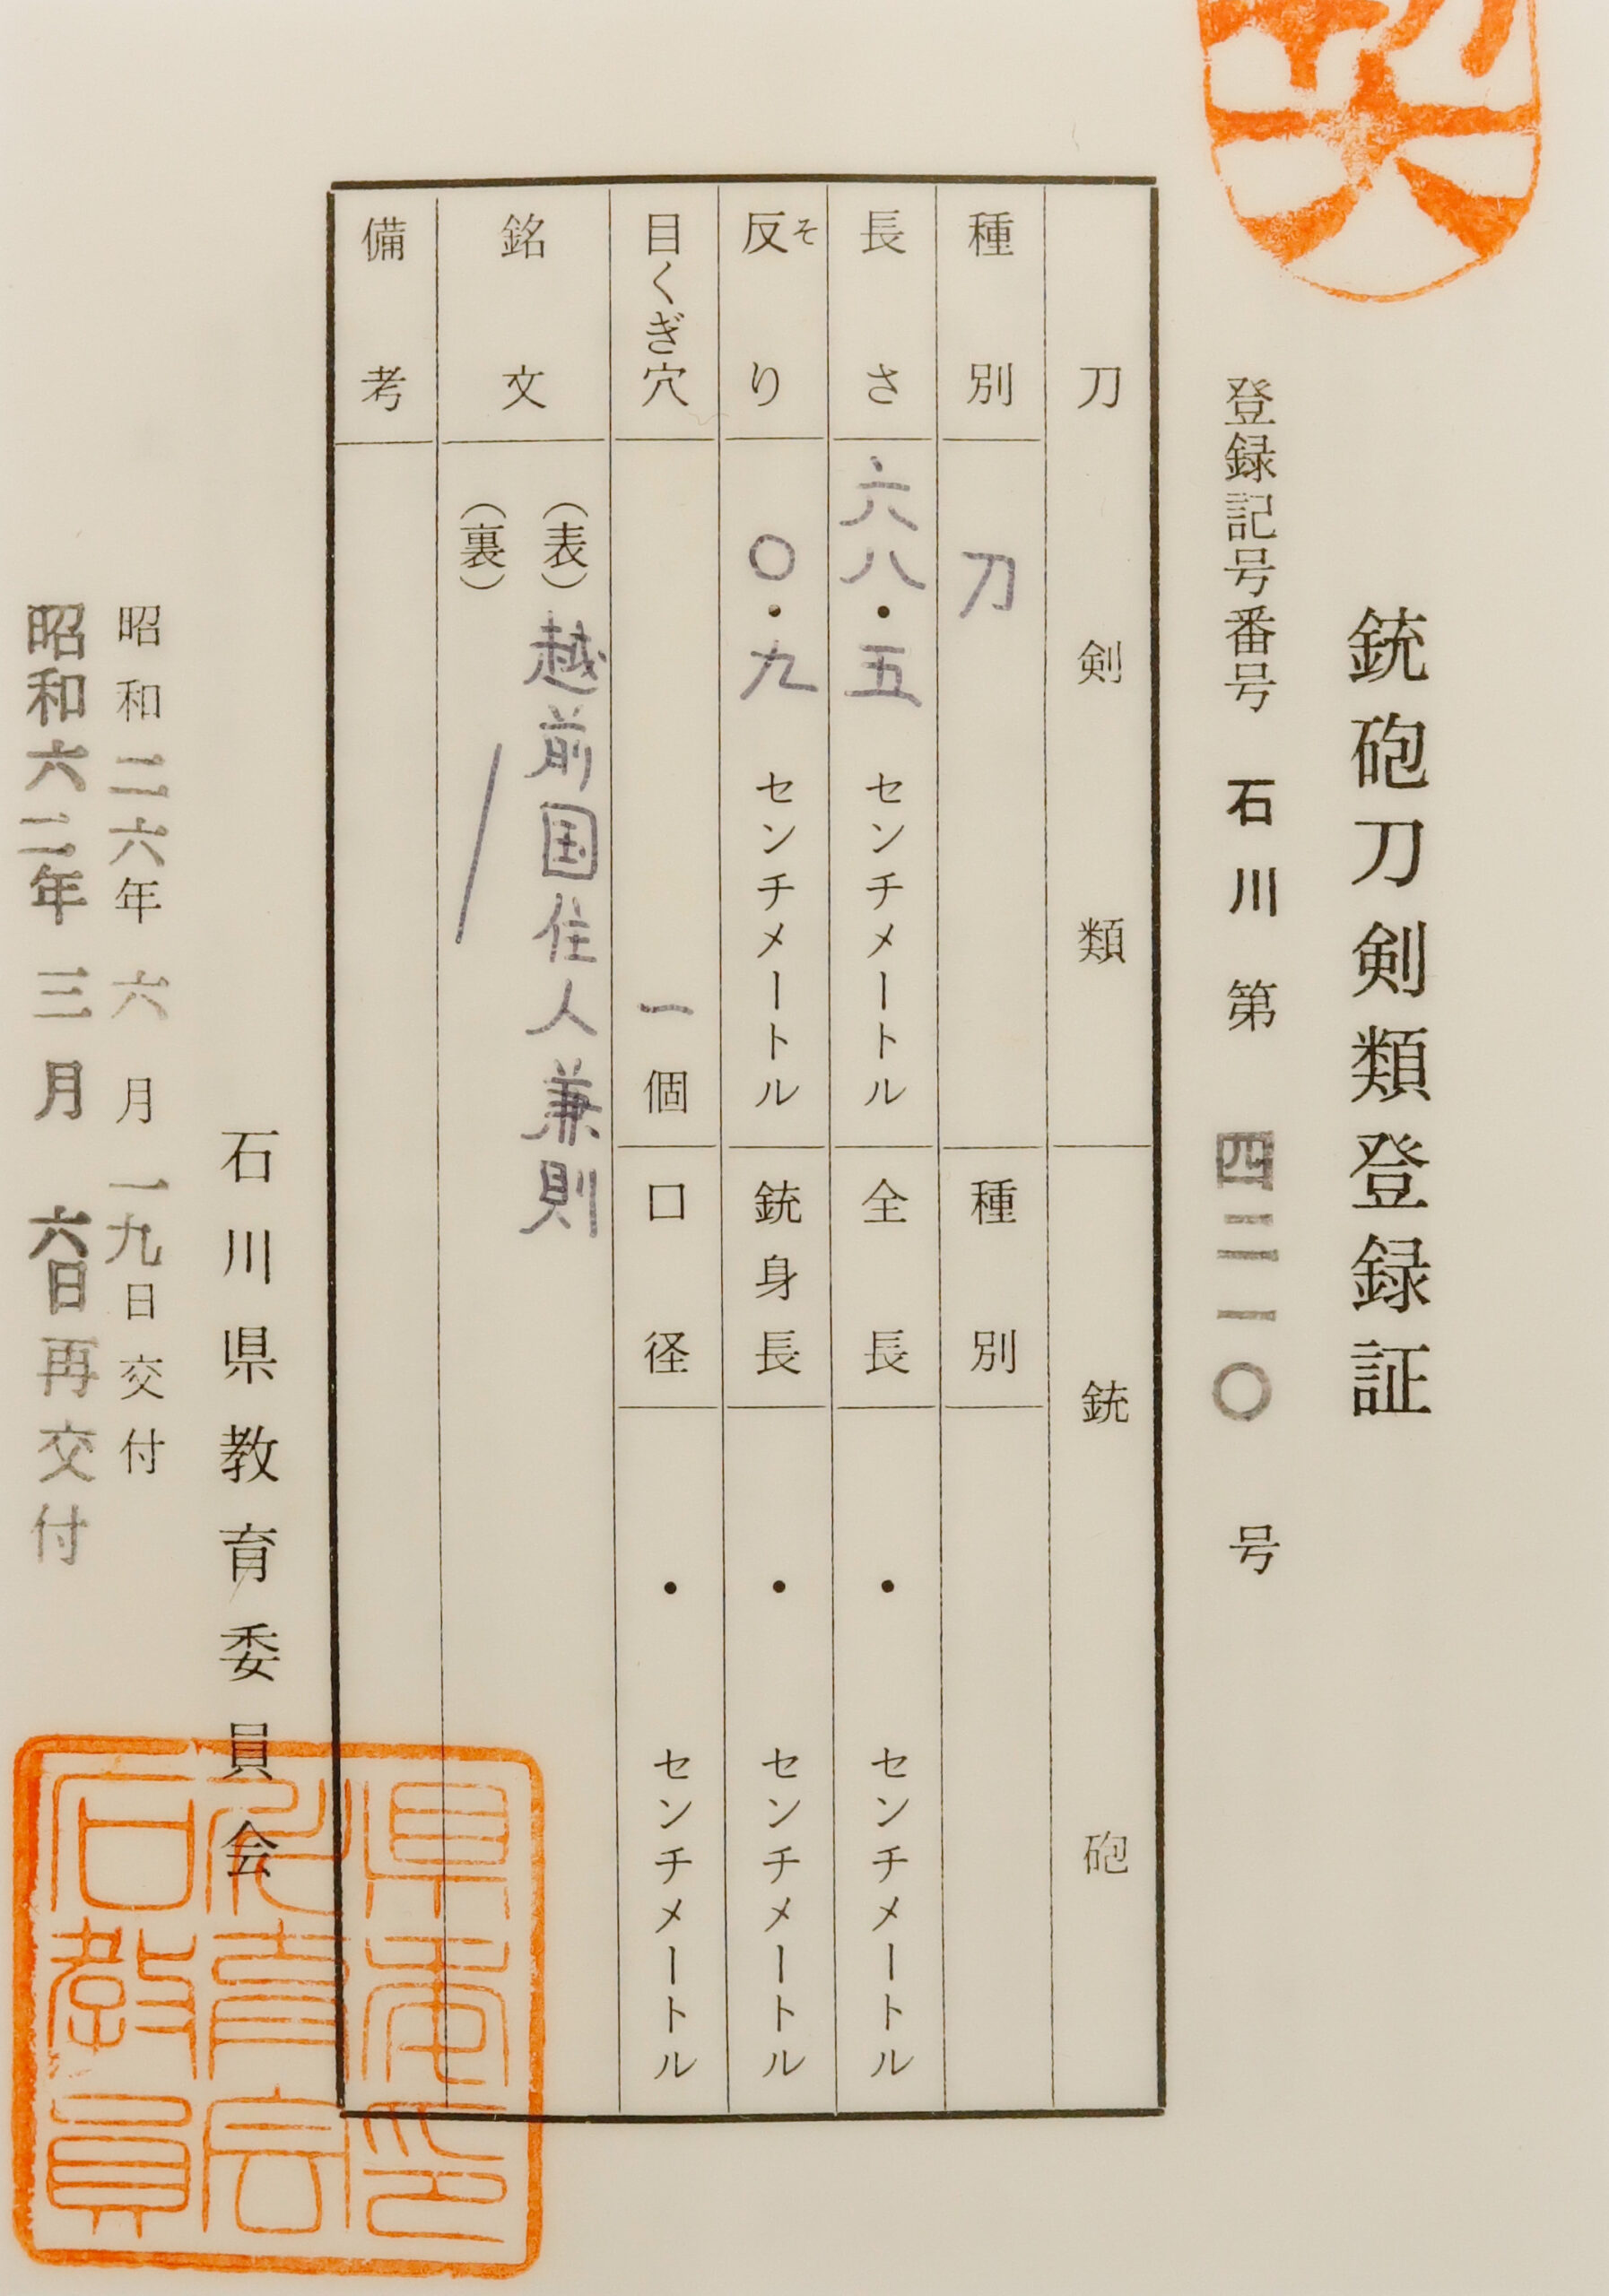 銃砲刀剣類登録証
登録記号番号 石川 第 四二一〇 号
刀剣類 銃砲
種別 刀 種別
長さ 六八・五 センチメートル 全長 ・ センチメートル
反り そ 〇・九 センチメートル 銃身長 ・ センチメートル
目くぎ穴 一個 口径 ・ センチメートル
銘文 (表) 越前国住人兼則
(裏)
備考
石川県教育委員会
昭和二六年六月一九日交付
昭和六二年三月六日再交付
石川県
教育委
員会印